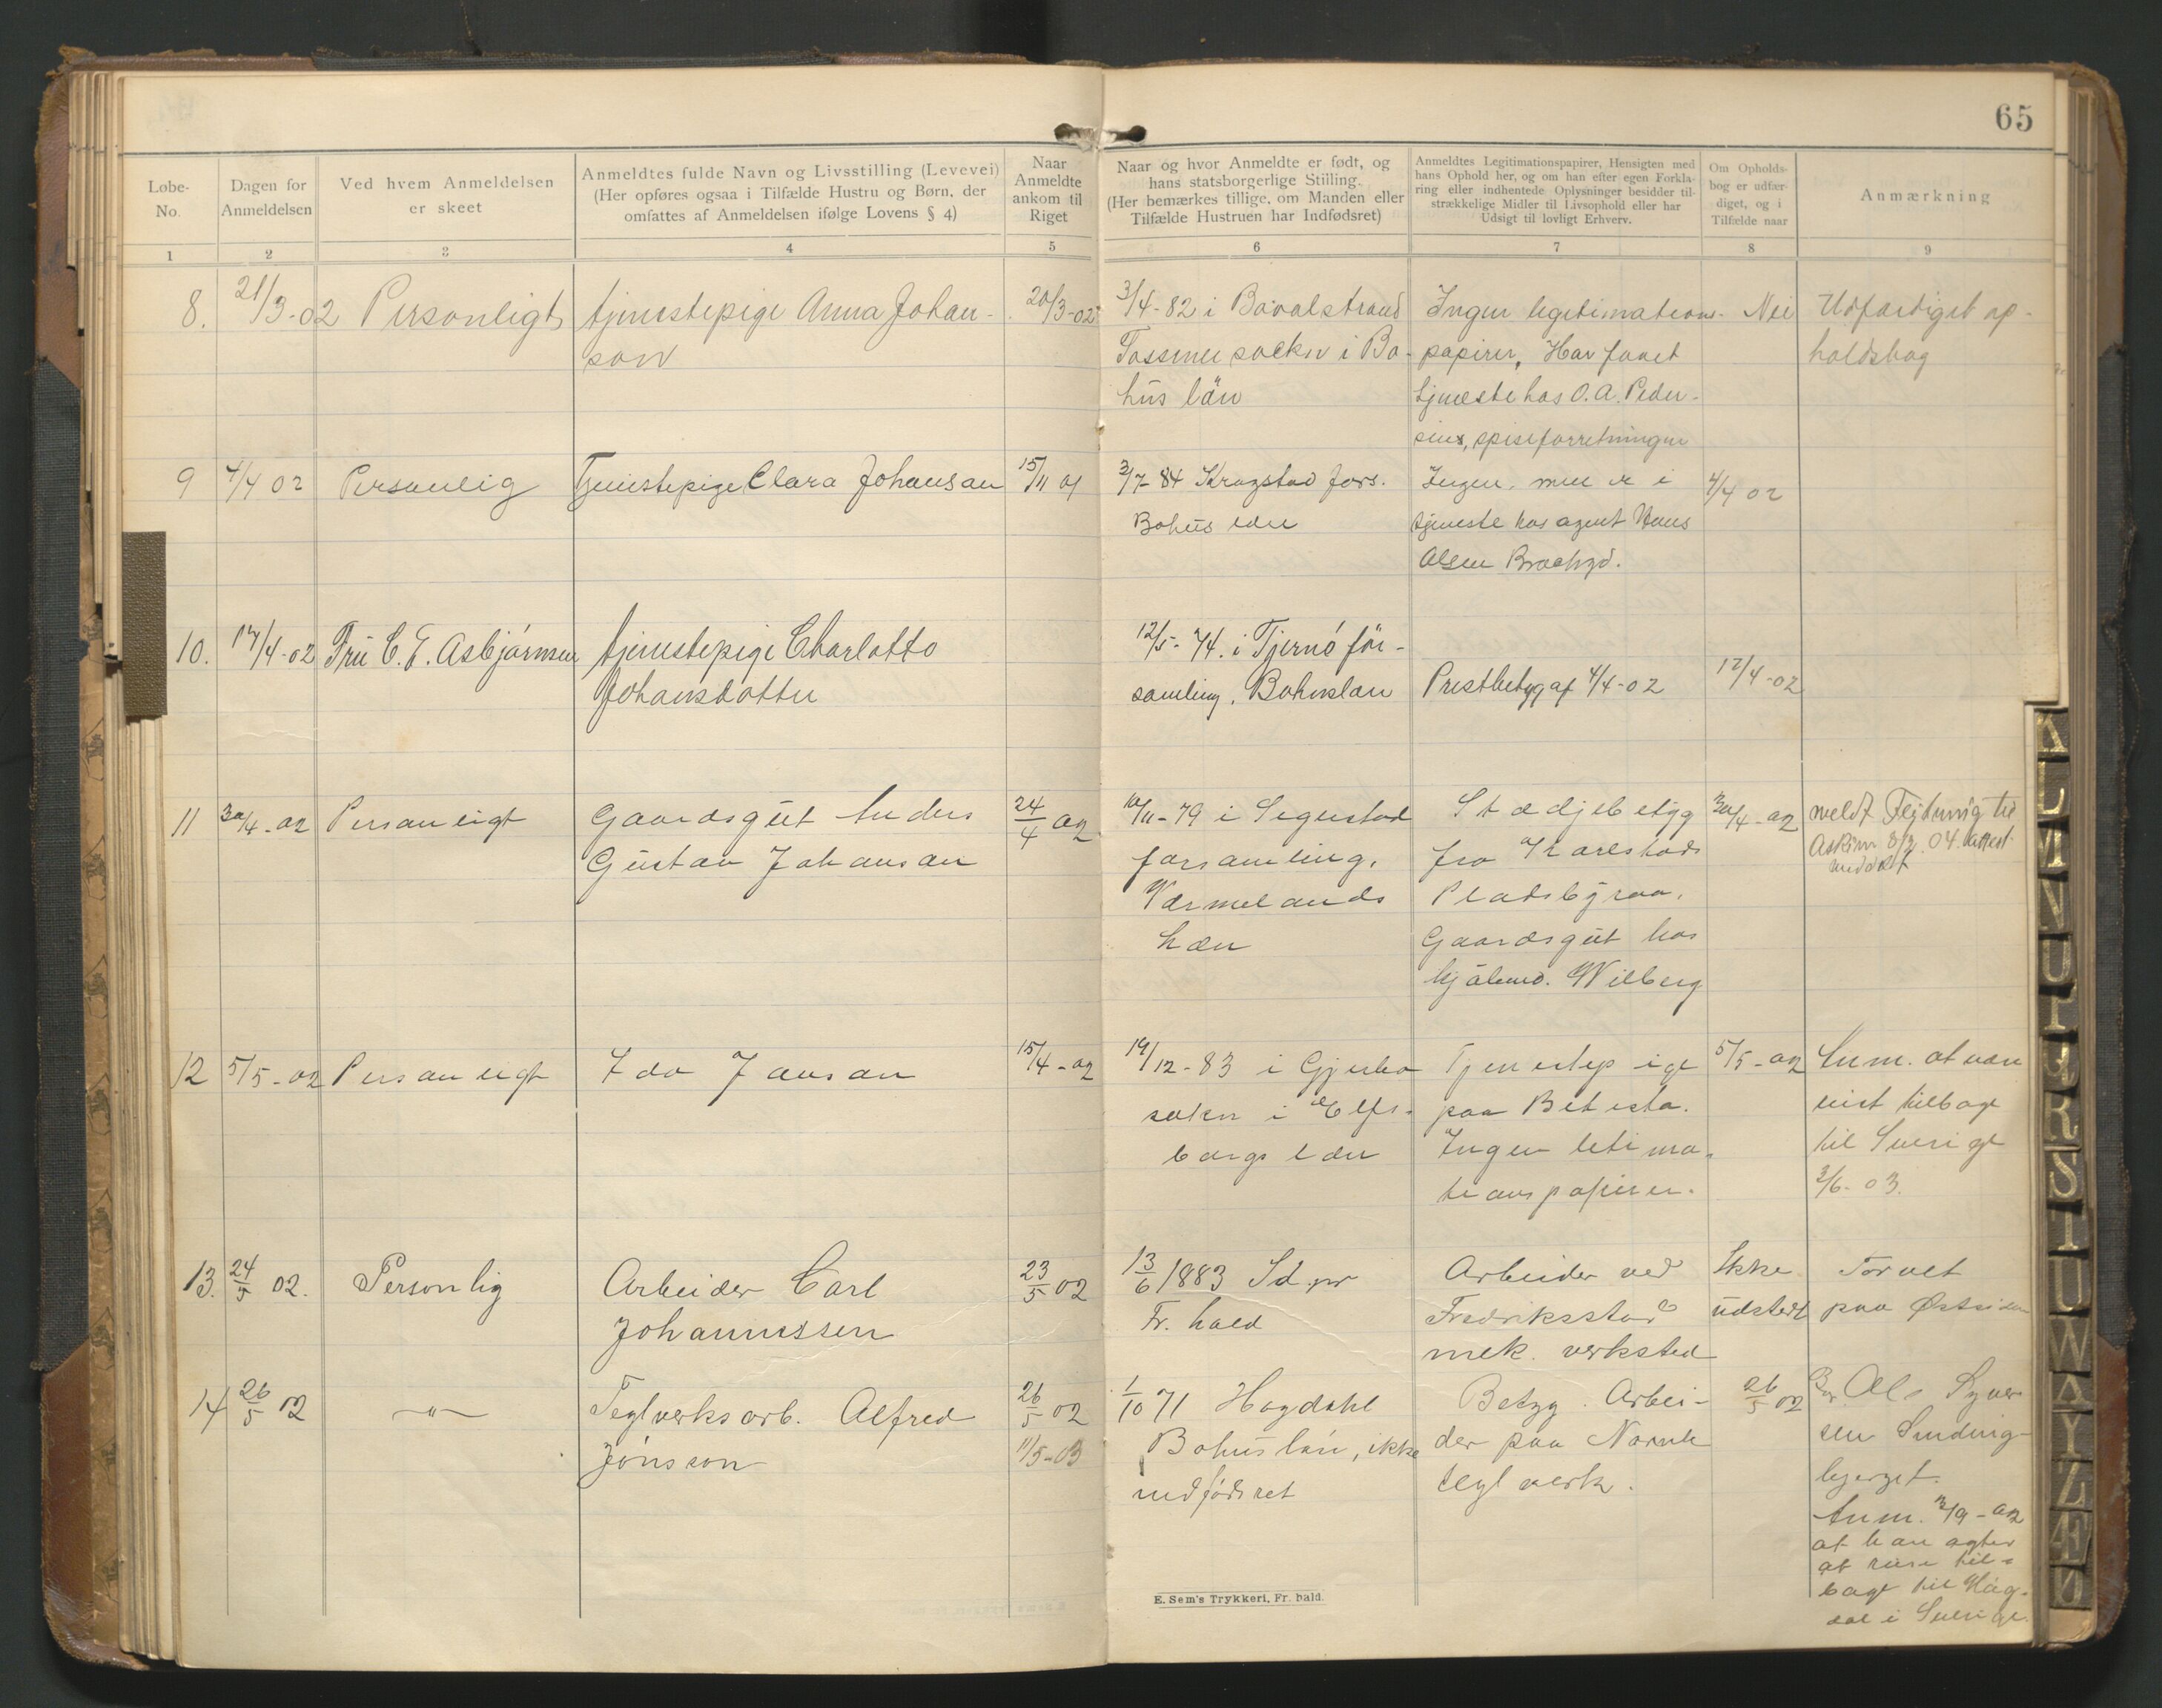 65
Løbe-
No.
Dagen for
Anmeldelsen
Ved hvem Anmeldelsen
er skeet
Anmeldtes fulde Navn og Livsstilling (Levevei)
(Her opføres ogsaa i Tilfælde Hustru og Børn, der
omfattes af Anmeldelsen ifølge Lovens § 4)
Naar
Anmeldte
ankom til
Riget
Naar og hvor Anmeldte er født, og
hans statsborgerlige Stilling.
(Her bemærkes tillige, om Manden eller
Tilfælde Hustruen har Indfødsret)
Anmeldtes Legitimationspapirer, Hensigten med
hans Ophold her, og om han efter egen Forkla-
ring eller indhentede Oplysninger besidder til-
strækkelige Midler til Livsophold eller har
Udsigt til lovligt Erhverv.
Om Opholds-
bog er udfær-
diget, og i
Tilfælde naar
Anmærkning
1 2 3 4 5 6 7 8 9
8. 21/3-02 Personligt tjenestepige Anna Johan- 20/3-02 3/4-82 i Bovalstrand Ingen legitimations- Nei Udfærdiget op-
son Tossene sockn i Bo- papirer, Har faaet holdsbog
hus län tjeneste hos O. A. Peder-
sens, spiseforretningen
9 4/4 02 Personlig Tjenestepige Clara Johansan 15/11 01 3/7-84 Krogstad fors. Ingen, men er i 4/4 02
Bohus län tjeneste hos agent Hans
Olsen Brochgd.
10. 17/4-02 Fru C. E. Asbjørnsen tjenestepige Charlotte 12/5-74. i Tjernö för-
Johansdotter samling, Bohuslän Prestbetyg af 4/4-02 17/4-02
11 30/4-02 Personligt Gaardsgut Anders 24/4 02 10/11-79 i Segerstad Stædjebetyg 30/4-02 meldt Flytning til
Gustav Johansan forsamling, fra Karlstads Askim 8/2 04. attest
Værmelands Pladsbyraa. meddelt
Læn Gaardsgut hos
kjøbmd. Wilberg
12 5/5-02 Personligt Ida Jansan 15/4-02 19/12-83 i Gjerbo Tjenestepige 5/5-02 Anm. at være
sokn i Elfs- paa Betesta. reist tilbage
borgs læn Ingen letima- til Sverige
tionspapirer. 3/6-03.
13. 24/5 02. Personlig Arbeider Carl 23/5 02 13/6 1883 Id pr Arbeider ved Ikke Torvet
Johannessen Fr. hald Fredriksstad udstedt paa Østsiden
mek. verksted
14 26/5 02 —"— Teglverksarb. Alfred 26/5 02 1/10 71 Hogdahl Betyg. Arbei- 26/5 02 Ols Syver
Jönsson 11/5-03 Bohuslän, ikke der paa Narnte sen
indfødsret teglverk. bjerget.
Anm. /9-02
at han agter
at reise til-
bage til Hog-
dal i Sverige.
E. Sem's Trykkeri, Fr. hald.
K
L
M
N
O
P
R
S
T
U
W
A
Y
Z
Æ
Ø